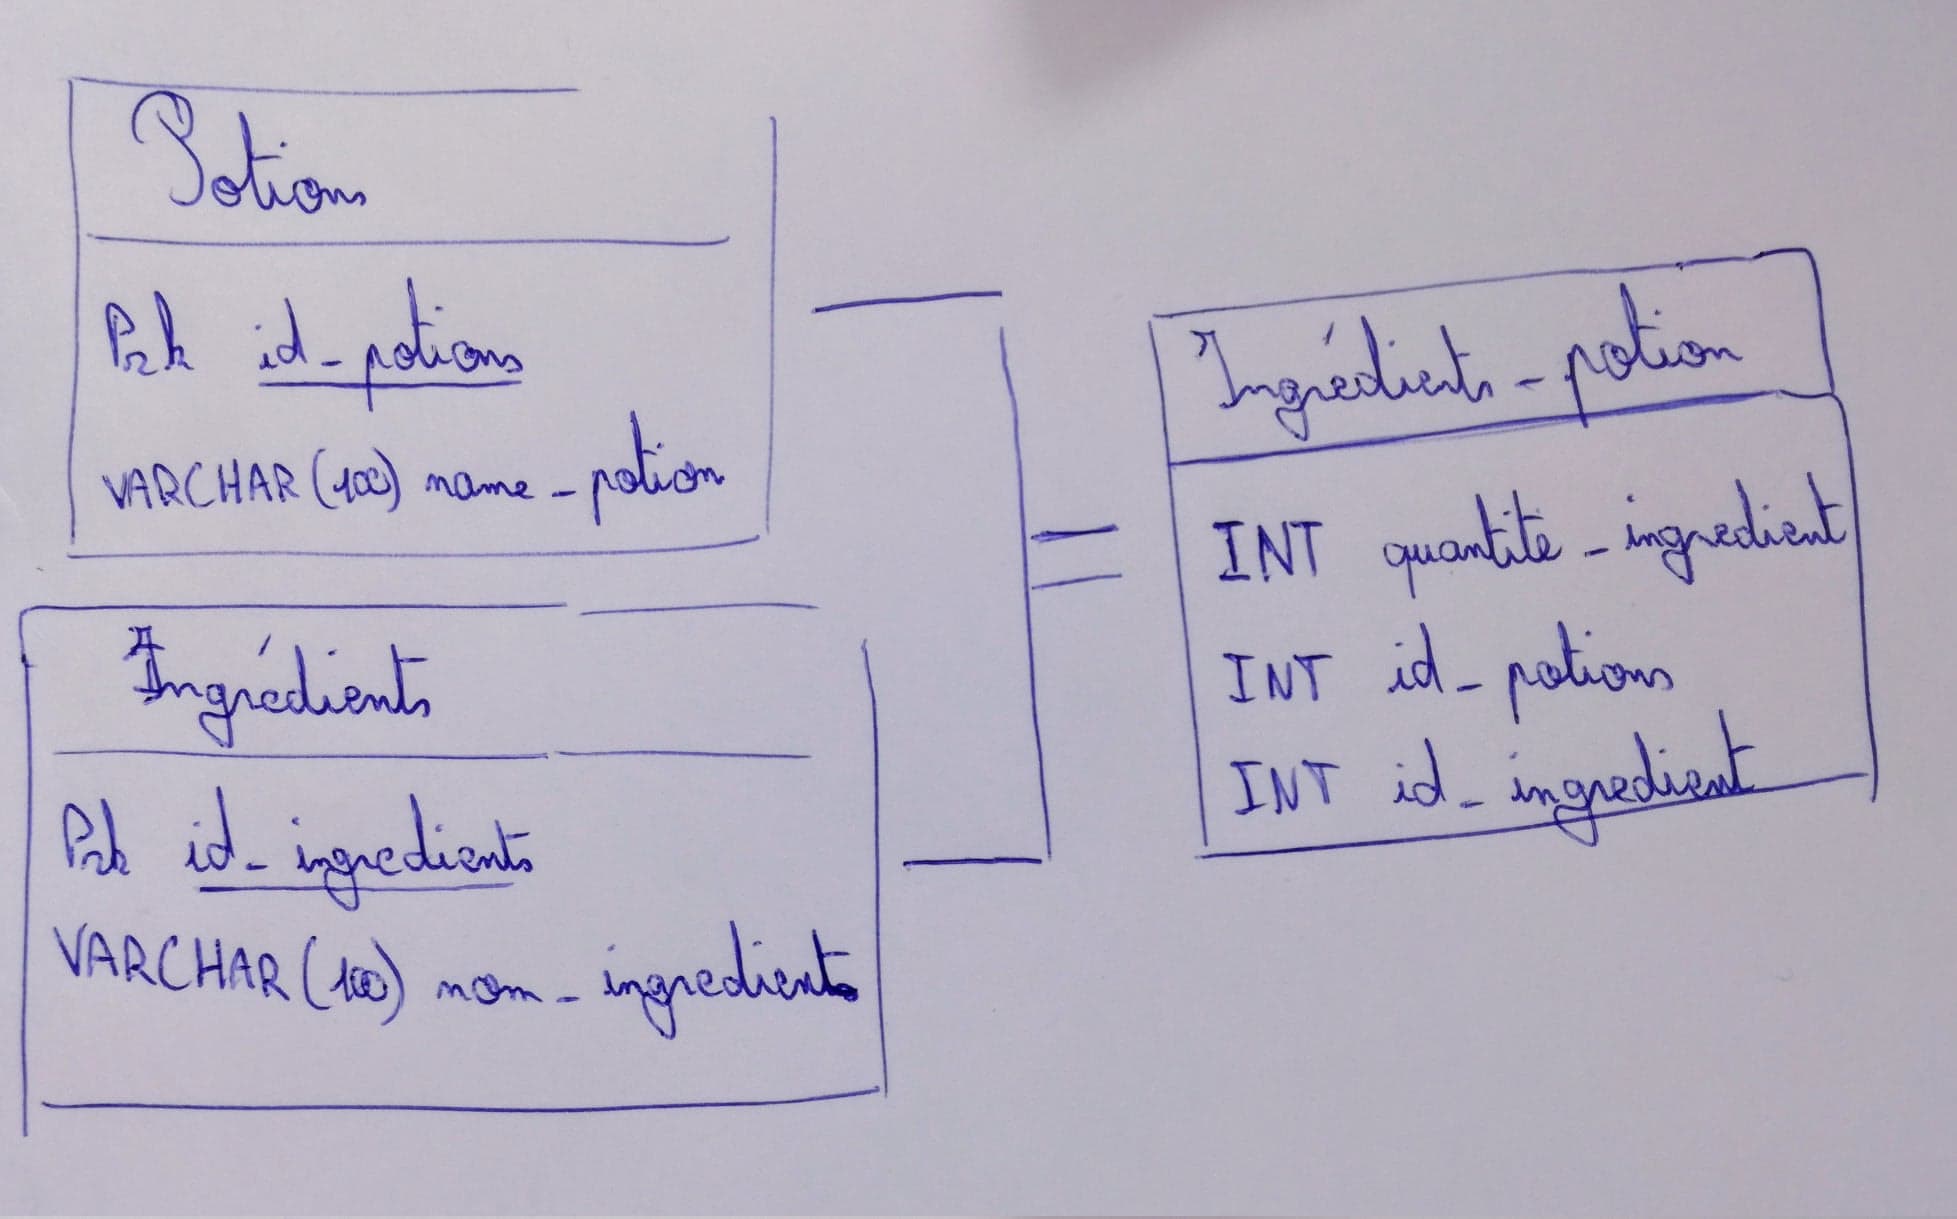 Potions
Prk id_potions
VARCHAR(100) name_potion
Ingrédients
Prk id_ingredients
VARCHAR(100) nom_ingredients
Ingrédients_potion
INT quantité_ingredient
INT id_potions
INT id_ingredient